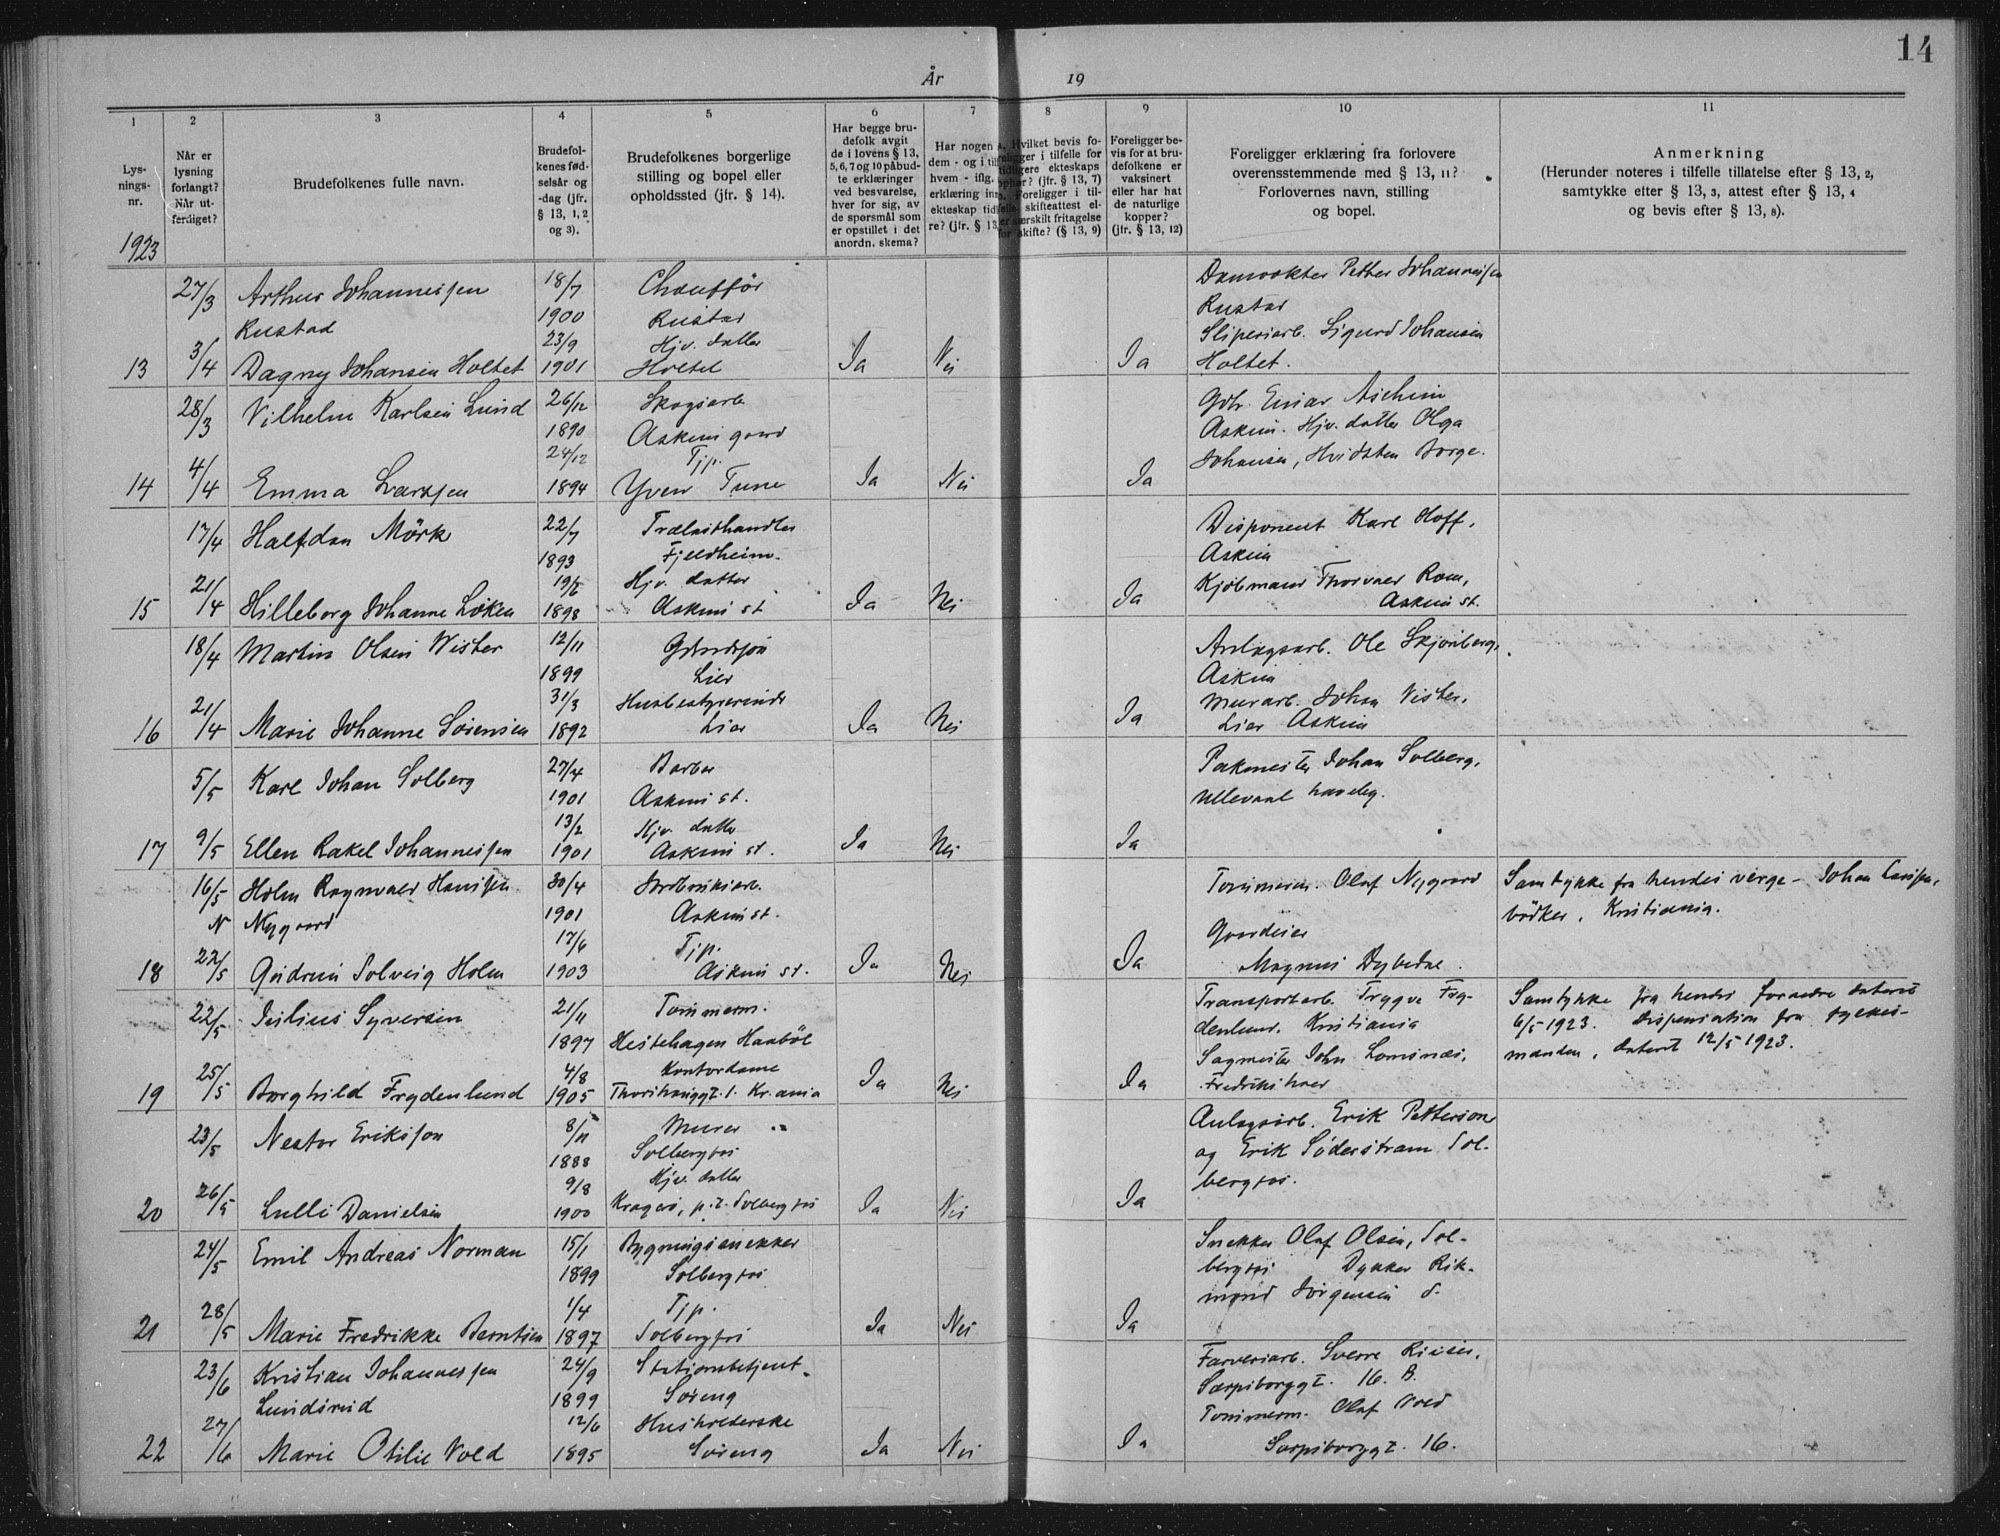 14
År 19
1 2 3 4 5 6 7 8 9 10 11
Lys-
nings-
nr.
Når er
lysning
forlangt?
Når ut-
ferdiget?
Brudefolkenes fulle navn.
Brudefol-
kenes fød-
selsår og
-dag (jfr.
§ 13, 1, 2
og 3).
Brudefolkenes borgerlige
stilling og bopel eller
opholdssted (jfr. § 14).
Har begge bru-
defolk avgit
de i lovens § 13,
5, 6, 7 og 10 påbud-
te erklæringer
ved besvarelse,
hver for sig, av
de spørsmål som
er opstillet i det
anordn. skema?
Har nogen a
dem - og i tilf
hvem - iflg.
erklæring inn
ekteskap tid
re? (jfr. § 13,
Hvilket bevis fo-
religger i tilfelle for
tidligere ekteskaps
ophør? (jfr. § 13, 7)
Foreligger i til-
felle skifteattest el-
ler særskilt fritagelse
for skifte? (§ 13, 9)
Foreligger be-
vis for at bru-
defolkene er
vaksinert
eller har hat
de naturlige
kopper?
(jfr. § 13, 12)
Foreligger erklæring fra forlovere
overensstemmende med § 13, 11?
Forlovernes navn, stilling
og bopel.
Anmerkning
(Herunder noteres i tilfelle tillatelse efter § 13, 2,
samtykke efter § 13, 3, attest efter § 13, 4
og bevis efter § 13, 8).
1923
27/3 Arthur Johannessen 18/7 Chauffør Damvokter Petter Johannessen
Rustad 1900 Rustad Rustad
3/4 23/9 Hjv. datter Sliperiarb. Sigurd Johansen
13 Dagny Johansen Holtet 1901 Holtet Ja Nei Ja Holtet.
28/3 Vilhelm Karlsen Lund 26/12 Skogsarb. Gdbr. Einar Askim
1890 Askim gaard Askim. Hjv. datter Olga
24/12 Tjp. Johansen, Hvidsten Borge.
14 4/4 Emma Larssen 1894 Yven Tune Ja Nei Ja
17/4 Halfdan Mörk 22/7 Trælasthandler Disponent Karl Hoff,
1893 Fjeldheim. Askim
21/4 19/6 Hjv. datter Kjöbmand Thorvald Rom,
15 Hilleborg Johanne Løken 1898 Askim st. Ja Nei Ja Askim st.
18/4 Martin Olsen Wister 12/11 Gdbrdsøn Anlægsarb. Ole Skjønberg,
1899 Lier Askim
21/4 31/3 Husbestyrerinde Murarb. Johan Vister,
16 Marie Johanne Sørensen 1892 Lier Ja Nei Ja Lier Askim
5/5 Karl Johan Solberg 27/4 Barber Pakmester Johan Solberg,
1901 Askim st. Ullevaal haveby.
9/5 13/2 Hjv. datter
17 Ellen Rakel Johannessen 1901 Askim st. Ja Nei Ja
16/5 Holm Ragnvald Hanssen 30/4 Jordbruksarb. Tømmerm. Olaf Nygaard Samtykke fra hendes verge - Johan
N Nygaard 1901 Askim st. Gaardeier bødker, Kristiania.
22/5 17/6 Tjp. Magnus Dybedal.
18 Gudrun Solveig Holm 1903 Askim st. Ja Nei Ja
22/5 Julius Syversen 21/11 Tømmerm. Transportarb. Trygve Fry- Samtykke fra hendes forældre dateret
1897 Hestehagen Haabøl denlund, Kristiania 6/5 1923. Dispensation fra fylkes-
25/5 4/8 Kontordame Sagmester John Lomsnæs, manden, dateret 12/5 1923.
19 Borghild Frydenlund 1905 Thorshauggt. 1. Kr.ania Ja Nei Ja Fredrikstad
23/5 Nestor Eriksson 8/11 Murer Anlægsarb. Erik Petterson
1888 Solbergfos og Erik Söderstram Sol-
26/5 9/8 Hjv. datter bergfos.
20 Lulli Danielsen 1900 Kragerø, p.t. Solbergfos Ja Nei Ja
24/5 Emil Andreas Norman 15/1 Bygningssnekker Snekker Olaf Olsen, Sol-
1899 Solbergfos bergfos Dykker Rik-
28/5 1/4 Tjp. mond Jørgensen d.
21 Marie Fredrikke Berntsen 1897 Solbergfos Ja Nei Ja
23/6 Kristian Johannessen 24/9 Stationsbetjent. Farveriarb. Sverre Riiser,
Lundsrud 1899 Søreng Sarpsborggt. 16. B.
27/6 12/6 Husholderske Tømmerm. Olaf Vold
22 Marie Otilie Vold 1895 Søreng Ja Nei Ja Sarpsborggt. 16.